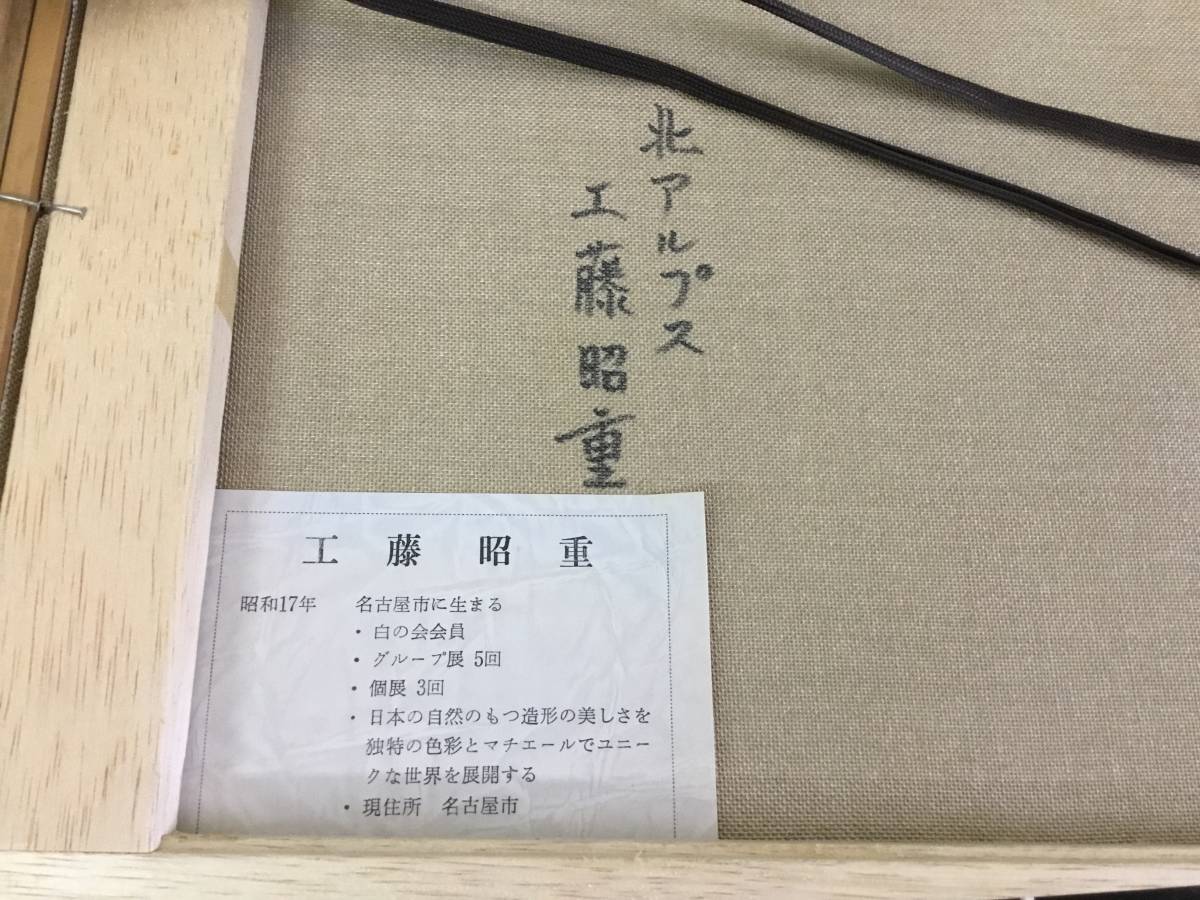 北アルプス
工藤昭重
工藤昭重
昭和17年 名古屋市に生まる
・白の会会員
・グループ展 5回
・個展 3回
・日本の自然のもつ造形の美しさを
独特の色彩とマチエールでユニー
クな世界を展開する
・現住所 名古屋市